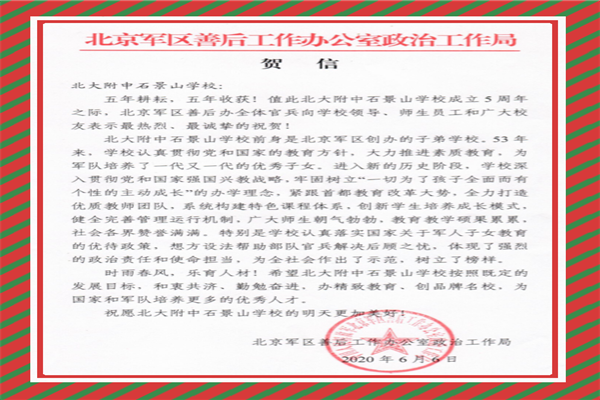 北京军区善后工作办公室政治工作局
贺 信
北大附中石景山学校:
五年耕耘,五年收获!值此北大附中石景山学校成立5周年
之际,北京军区善后办全体官兵向学校领导、师生员工和广大校
友表示最热烈、最诚挚的祝贺!
北大附中石景山学校前身是北京军区创办的子弟学校。53年
来,学校认真贯彻党和国家的教育方针,大力推进素质教育,为
军队培养了一代又一代的优秀子女。进入新的历史阶段,学校深
入贯彻党和国家强国兴教战略,牢固树立“一切为了孩子全面而有
个性的主动成长”的办学理念,紧跟首都教育改革大势,全力打造
优质教师团队,系统构建特色课程体系,创新学生培养成长模式,
健全完善管理运行机制,广大师生朝气勃勃,教育教学硕果累累,
社会各界赞誉满满。特别是学校认真落实国家关于军人子女教育
的优待政策,想方设法帮助部队官兵解决后顾之忧,体现了强烈
的政治责任和使命担当,为全社会作出了示范,树立了榜样。
时雨春风,乐育人材!希望北大附中石景山学校按照既定的
发展目标,和衷共济、勤勉奋进,办精致教育、创品牌名校,为
国家和军队培养更多的优秀人才。
祝愿北大附中石景山学校的明天更加美好!
北京军区善后工作办公室政治工作局
2020年6月6日